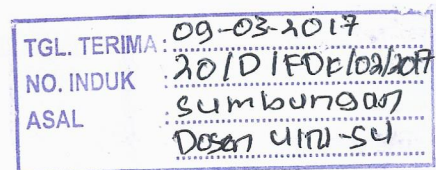 TGL. TERIMA : 09-03-2017
NO. INDUK : 20/D/FDK/03/2017
ASAL : Sumbungan
Dosen UIN-SU